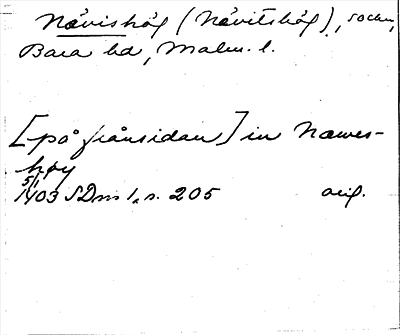 Nävishög (Nävitshög), socken,
Bara hd, Malm. l.
[på frånsidan] in Nawes-
høy
5/1
1403 SDns 1, s. 205 orig.